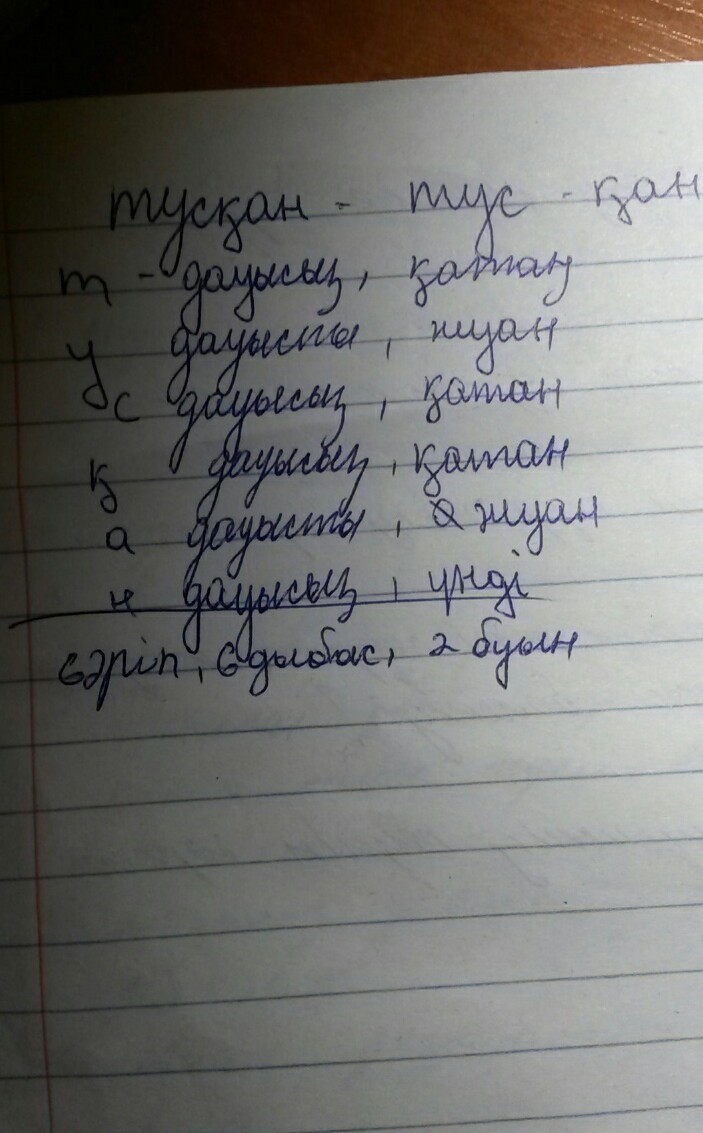 тусқан - тус - қан
т - дауысыз, қатаң
у дауысты, жуан
с дауысыз, қатан
қ дауысыз, қатан
а дауысты, жуан
н дауысыз, үнді
6әріп, 6дыбас, 2 буын